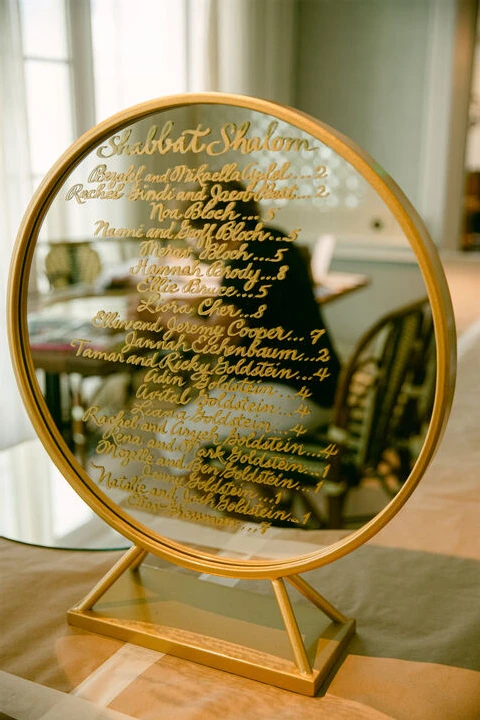 Shabbat Shalom
and Mikaella ...2
Rachel Gindi and Jacob ...2
Noa Bloch ... 5
Naomi and Geoff Bloch ...5
Bloch ...5
Hannah Brody ...8
Ellie Bruce ...5
Liora Cher ...8
Ellin and Jeremy Cooper ... 7
Jannah Eichenbaum ...2
Tamar and Ricky Goldstein ...4
Adin Goldstein ...4
Avital Goldstein ...4
Liana Goldstein ...4
Rachel and Goldstein ...4
Lena and Mark Goldstein ...1
and Ben Goldstein ...1
Goldstein ...1
Natalie and Goldstein ...1